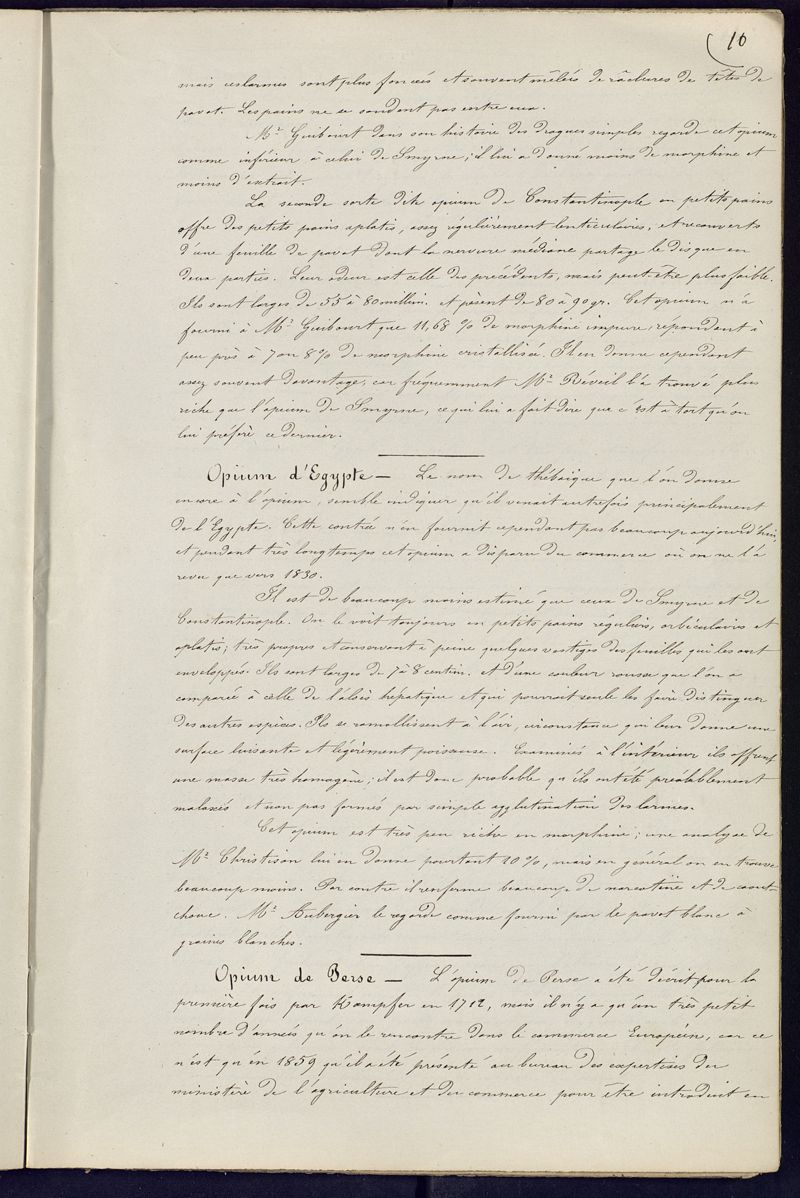 10
mais ces larmes sont plus foncées et souvent mêlées de râclures de têtes de
pavot. Les pains ne se soudent pas entre eux.
Mr Guibourt dans son histoire des drogues simples regarde cet opium
comme inférieur à celui de Smyrne; il lui a donné moins de morphine et
moins d'extrait.
La seconde sorte dite opium de Constantinople en petits pains
offre des petits pains aplatis, assez régulièrement lenticulaires, et recouverts
d'une feuille de pavot dont la nervure médiane partage le disque en
deux parties. Leur odeur est celle des précédents, mais peut être plus faible.
Ils sont larges de 55 à 80 millim. et pèsent de 80 à 90 gr. Cet opium n'a
fourni à Mr Guibourt que 11,68 % de morphine impure, répondant à
peu près à 7 ou 8 % de morphine cristallisée. Il en donne cependant
assez souvent davantage, car fréquemment Mr Réveil l'a trouvé plus
riche que l'opium de Smyrne, ce qui lui a fait dire que c'est à tort qu'on
lui préfère ce dernier.
Opium d'Egypte — Le nom de thébaïque que l'on donne
encore à l'opium, semble indiquer qu'il venait autrefois principalement
de l'Egypte. Cette contrée n'en fournit cependant pas beaucoup aujourd'hui,
et pendant très longtemps cet opium a disparu du commerce où on ne l'a
revu que vers 1830.
Il est de beaucoup moins estimé que ceux de Smyrne et de
Constantinople. On le voit toujours en petits pains réguliers, orbiculaires et
aplatis; très propres et conservant à peine quelques vestiges des feuilles qui les ont
enveloppés. Ils sont larges de 7 à 8 centim. et d'une couleur rousse que l'on a
comparée à celle de l'aloès hépatique et qui pourrait seule les faire distinguer
des autres espèces. Ils se ramollissent à l'air, circonstance qui leur donne une
surface luisante et légèrement poisseuse. Examinés à l'intérieur ils offrent
une masse très homogène; il est donc probable qu'ils ont été préalablement
malaxés et non pas formés par simple agglutination des larmes.
Cet opium est très peu riche en morphine; une analyse de
Mr Christison lui en donne pourtant 10 %, mais en général on en trouve
beaucoup moins. Par contre il renferme beaucoup de narcotine et de caout-
chouc. Mr Aubergier le regarde comme fourni par le pavot blanc à
graines blanches.
Opium de Perse — L'opium de Perse a été décrit pour la
première fois par Kampfer en 1712, mais il n'y a qu'un très petit
nombre d'années qu'on le rencontre dans le commerce Européen, car ce
n'est qu'en 1859 qu'il a été présenté au bureau des expertises du
ministère de l'agriculture et du commerce pour être introduit en